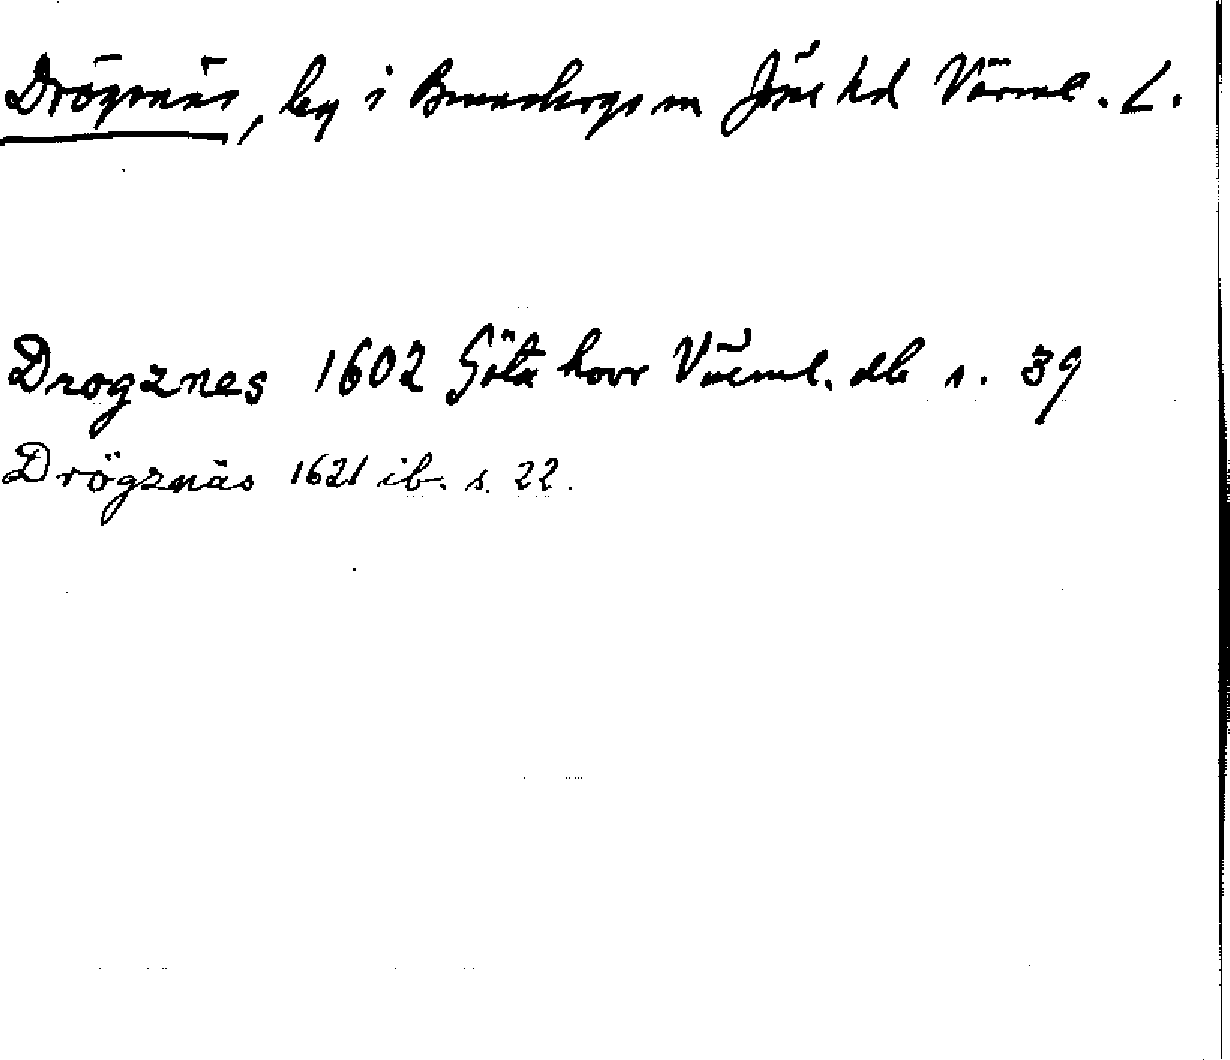 Drögsnäs, by i Brunskogs sn Jösse hd Värml. L.
Drogznes 1602 Göta hovr Värml. db s. 39
Drögznäs 1621 ib. s. 22.